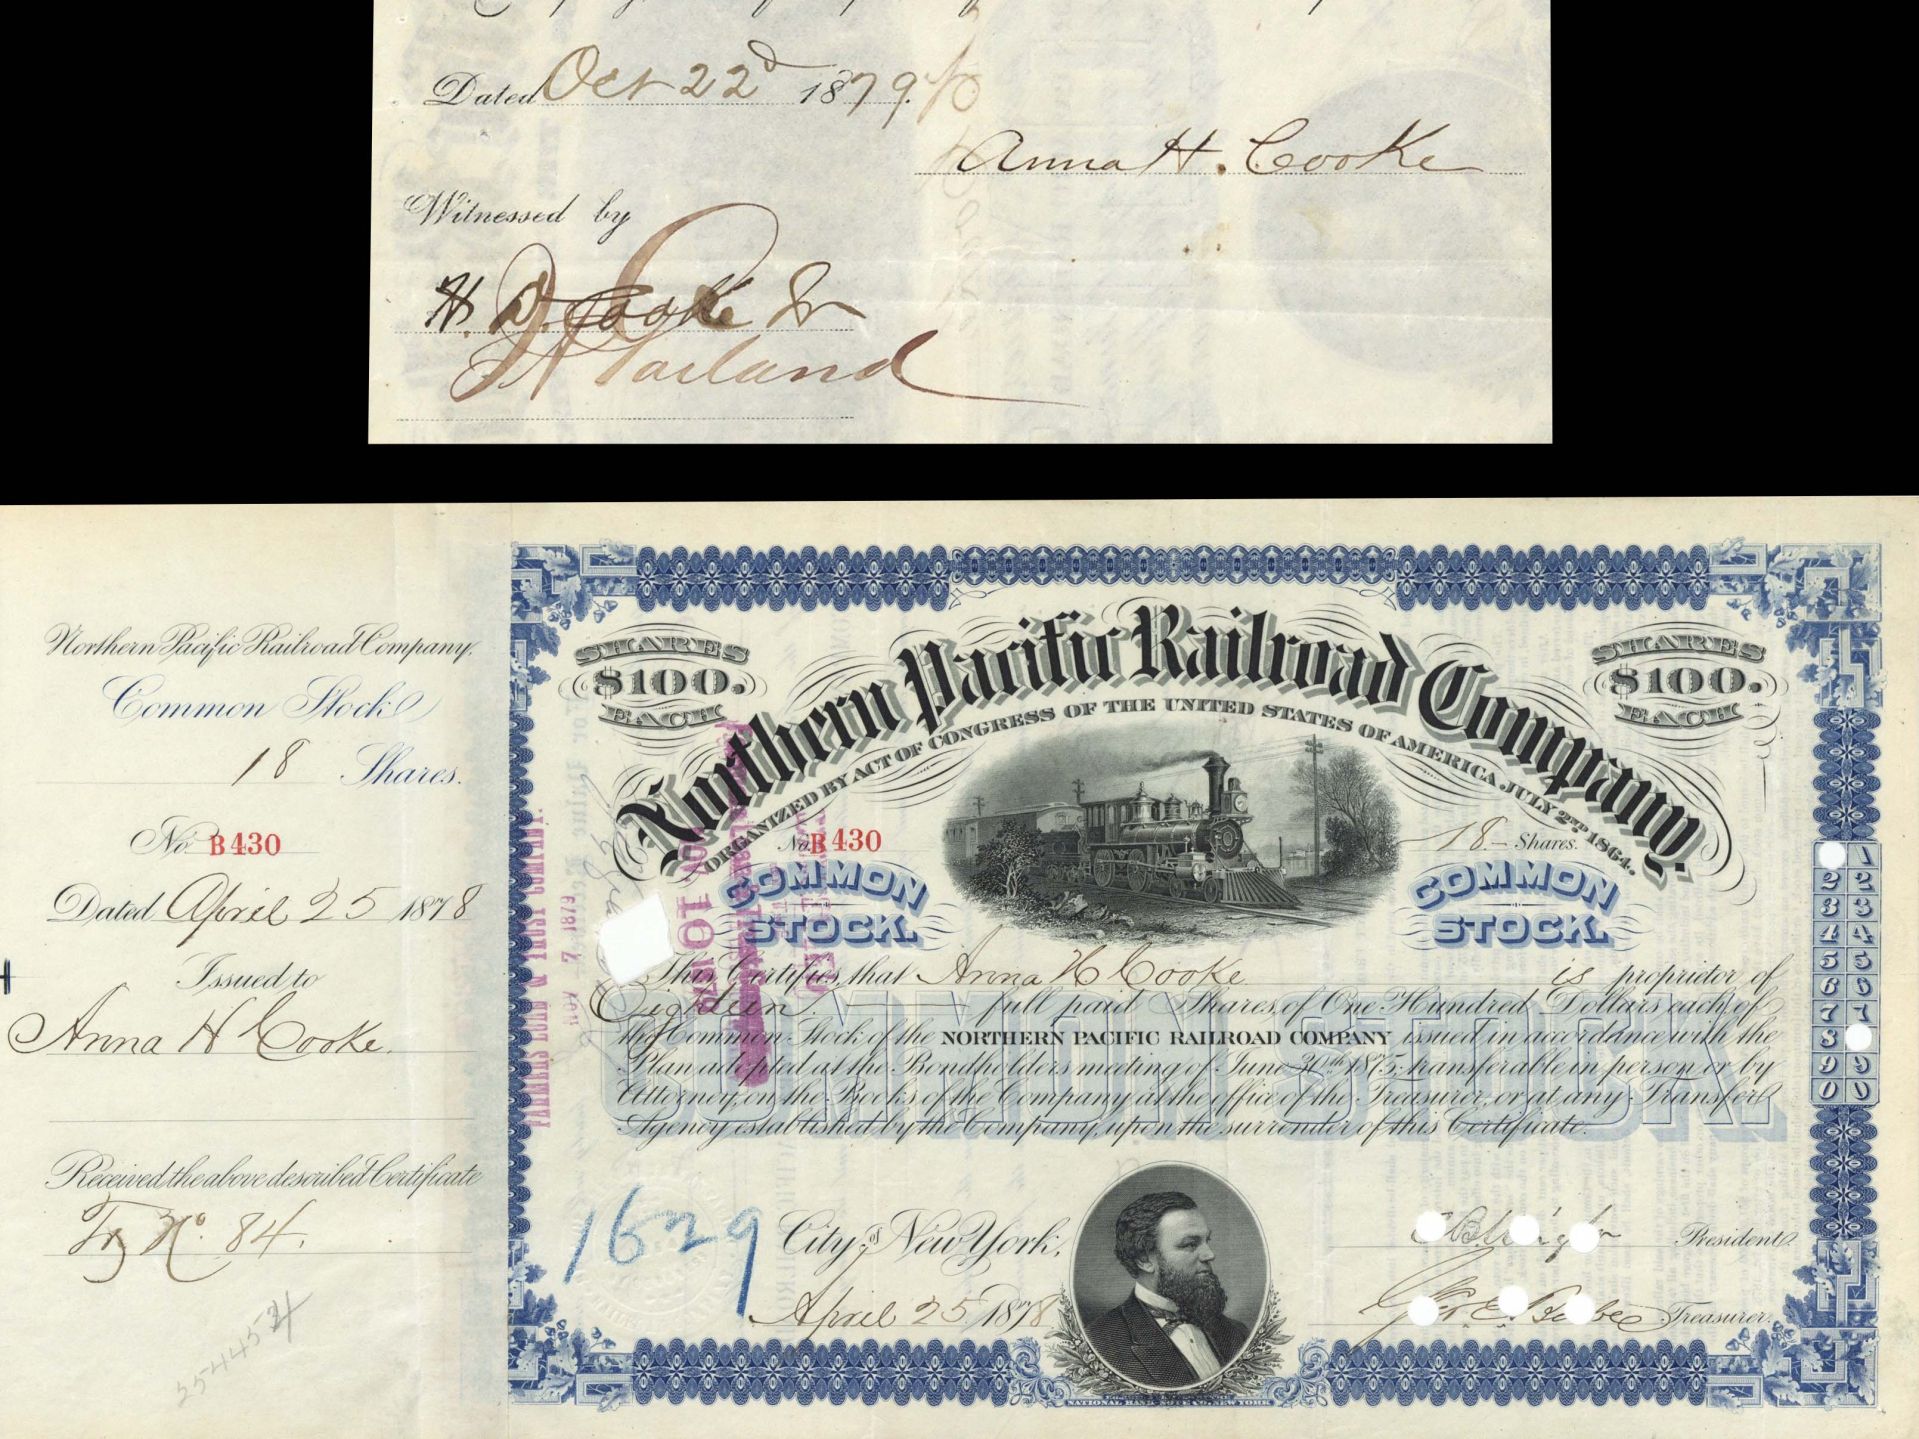 Dated Oct 22d 1879.
Anna H. Cooke
Witnessed by
H. D. Cooke Jr
Northern Pacific Railroad Company.
Common Stock
18 Shares.
No. B430
Dated April 25 1878
Issued to
Anna H Cooke
Received the above described Certificate
No. 84.
2544524
FARMERS LOAN & TRUST COMPANY.
SHARES
$100.
EACH
SHARES
$100.
EACH
Northern Pacific Railroad Company.
ORGANIZED BY ACT OF CONGRESS OF THE UNITED STATES OF AMERICA, JULY 2ND 1864.
No. B430
18 Shares.
COMMON
STOCK.
COMMON
STOCK.
NOV 10 1879
NOV 7 1879
This Certifies, that Anna H Cooke is proprietor of
Eighteen full paid Shares, of One Hundred Dollars each, of
the Common Stock of the NORTHERN PACIFIC RAILROAD COMPANY issued in accordance with the
Plan adopted at the Bondholders meeting of June 30th 1875; transferable in person or by
Attorney, on the Books of the Company at the office of the Treasurer, or at any Transfer
Agency established by the Company, upon the surrender of this Certificate.
COMMON STOCK.
1
2 2
3 3
4 4
5 5
6 6
7 7
8
9 9
0 0
1629
City of New York,
April 25 1878
President.
Geo. E. Beebe Treasurer.
NATIONAL BANK NOTE CO. NEW YORK